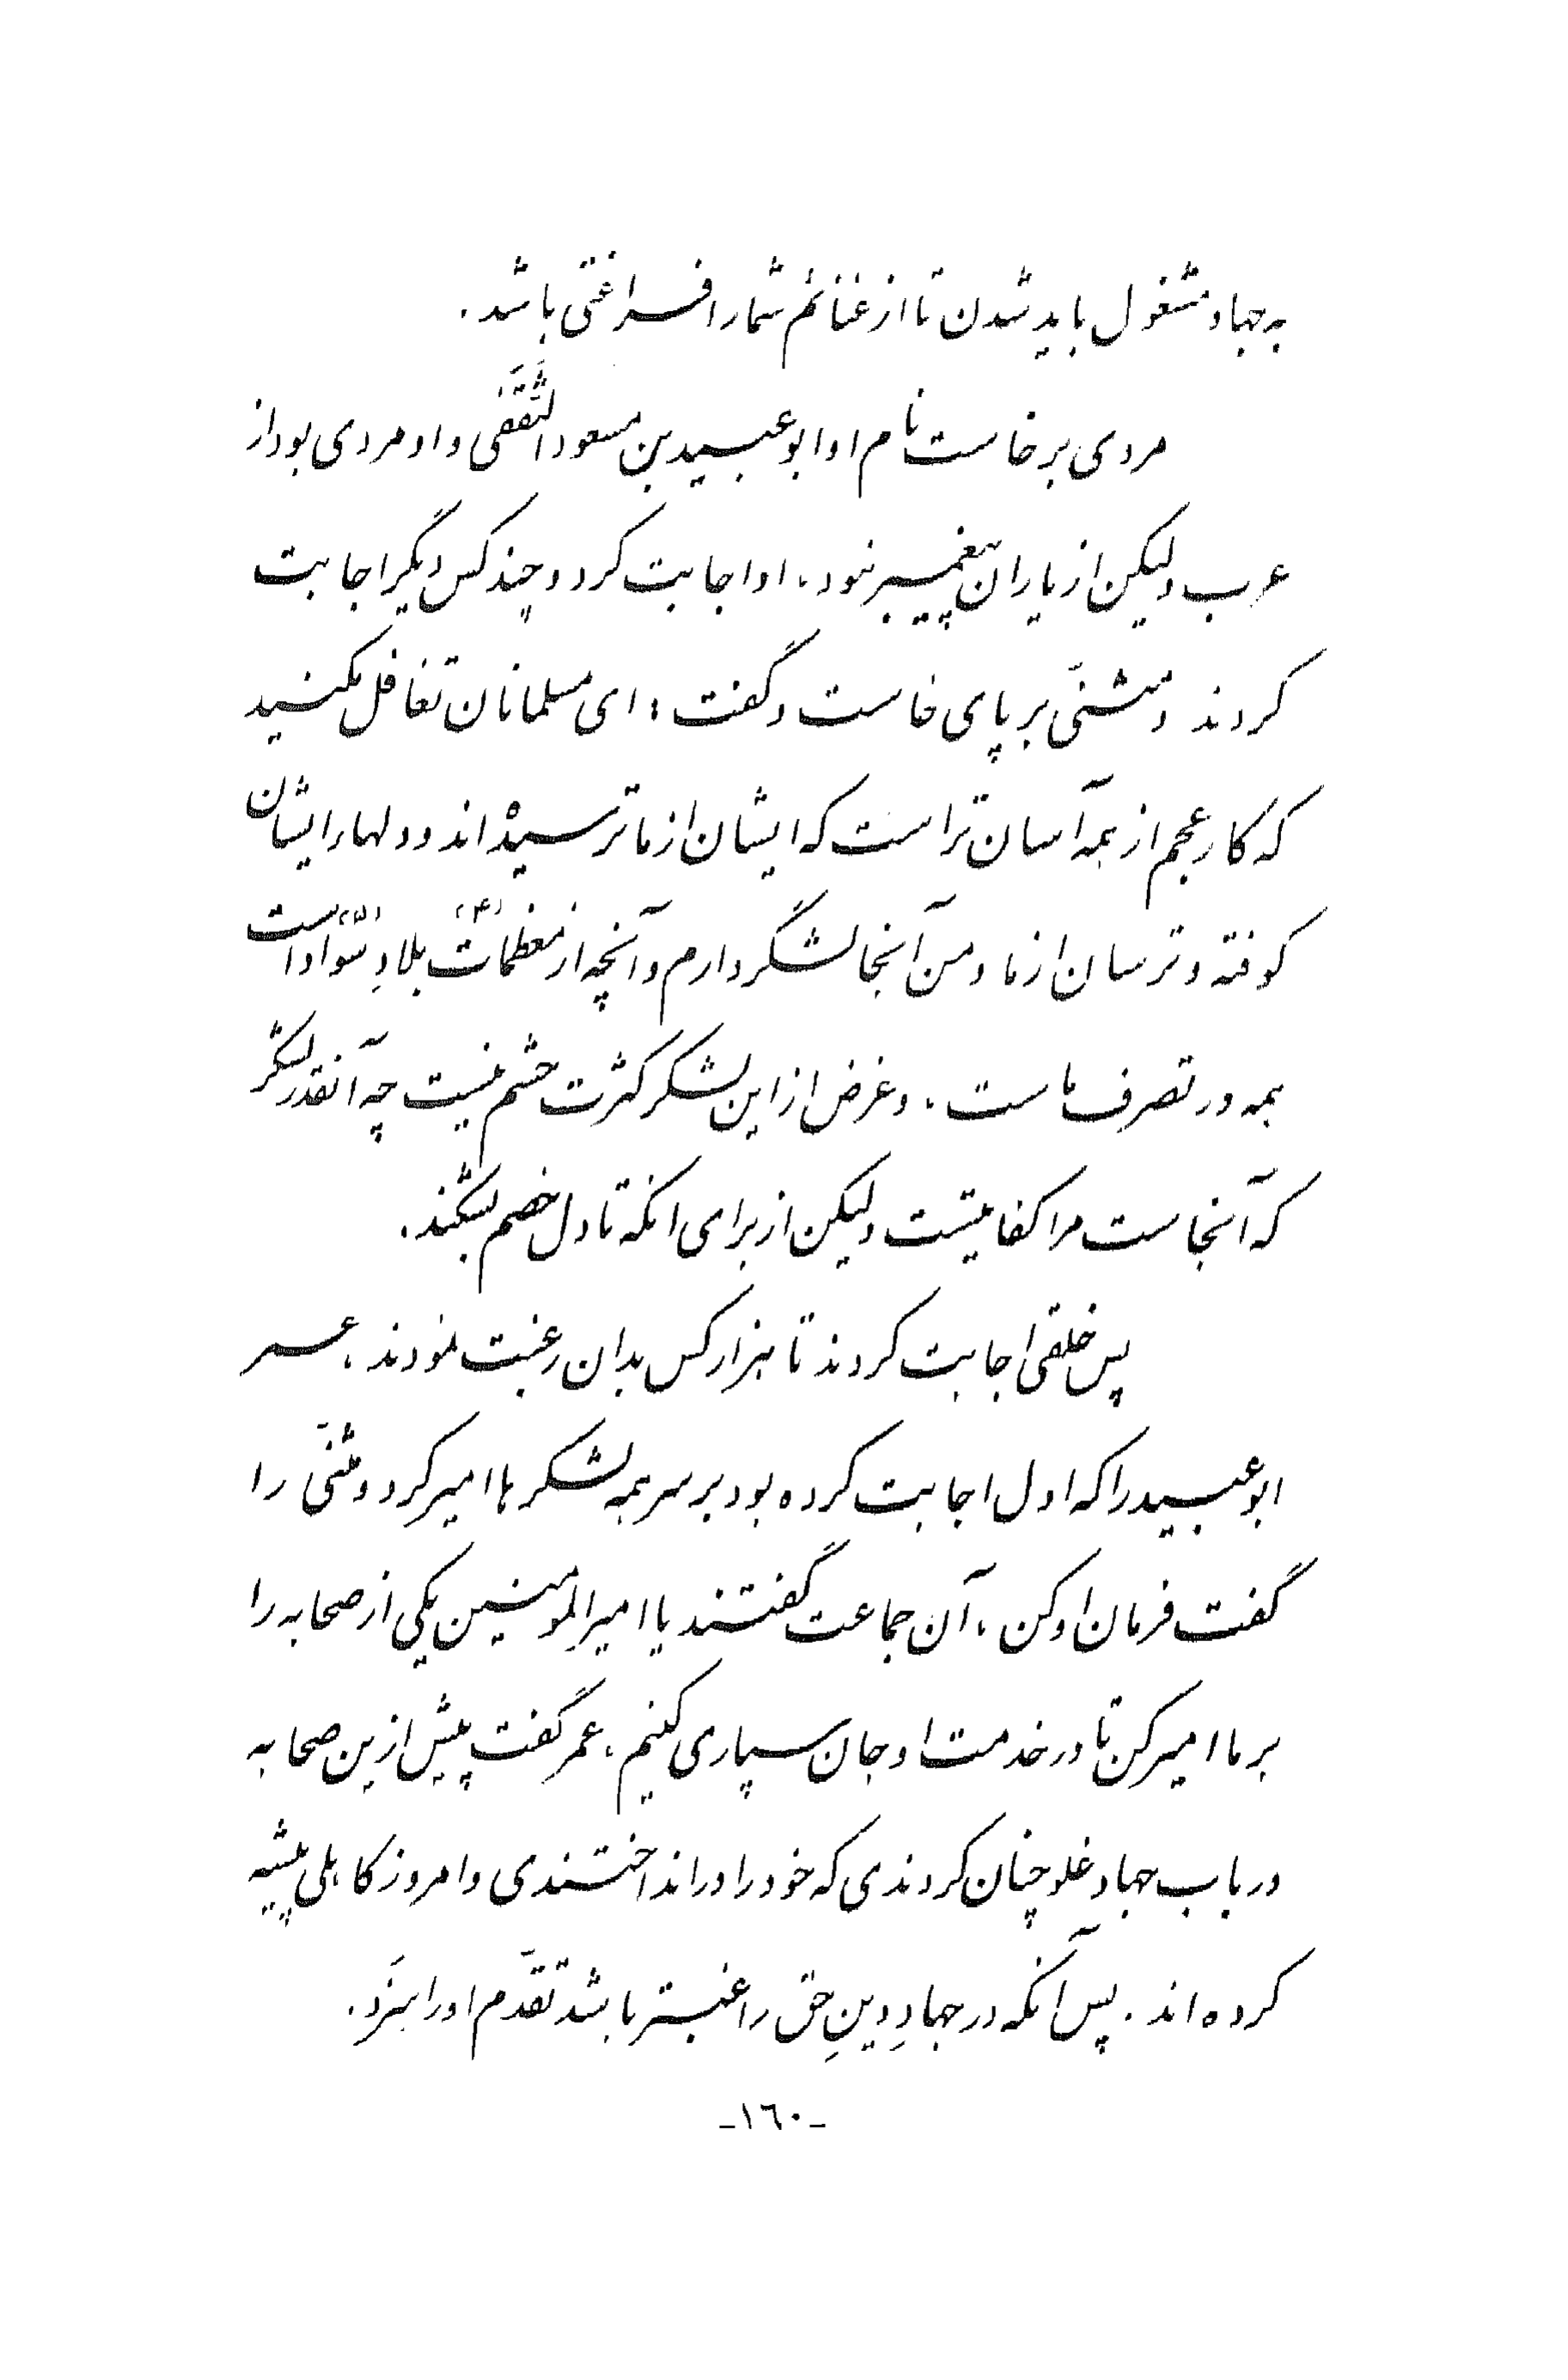 به جهاد مشغول باید شدن تا از غنائم شما را فراغتی باشد.
مردی برخاست نام او ابوعبید بن مسعود الثَّقَفی و او مردی بود از
عرب ولیکن از یاران پیغمبر نبود، او اجابت کرد و چند کس دیگر اجابت
کردند و مثنّی بر پای خاست و گفت: ای مسلمانان تغافل مکنید
که کار عجم از همه آسان‌تر است که ایشان از ما ترسیده‌اند و دلها را ایشان
کوفته و ترسان از ما و من آنجا لشگر دارم و آنچه از معظمات (۴) بلادِ سَواد (۵) است
همه در تصرف ماست، و غرض از این لشکر کثرت حشم نیست چه آنقدر لشکر
که آنجاست مرا کفایتست ولیکن از برای انکه تا دل خصم بشکند.
پس خلقی اجابت کردند تا هزار کس بدان رغبت نمودند، عمر
ابوعبید را که اول اجابت کرده بود بر سر همه لشکرها امیر کرد و مثنّی را
گفت فرمان او کن، آن جماعت گفتند یا امیرالمومنین یکی از صحابه را
بر ما امیر کن تا در خدمت او جان سپاری کنیم، عمر گفت پیش ازین صحابه
در باب جهاد غلو چنان کردندی که خود را در انداختندی و امروز کاهلی پیشه
کرده‌اند. پس آنکه در جهادِ دینِ حق راغبتر باشد تقدّم او را سزَد.
-١٦٠-